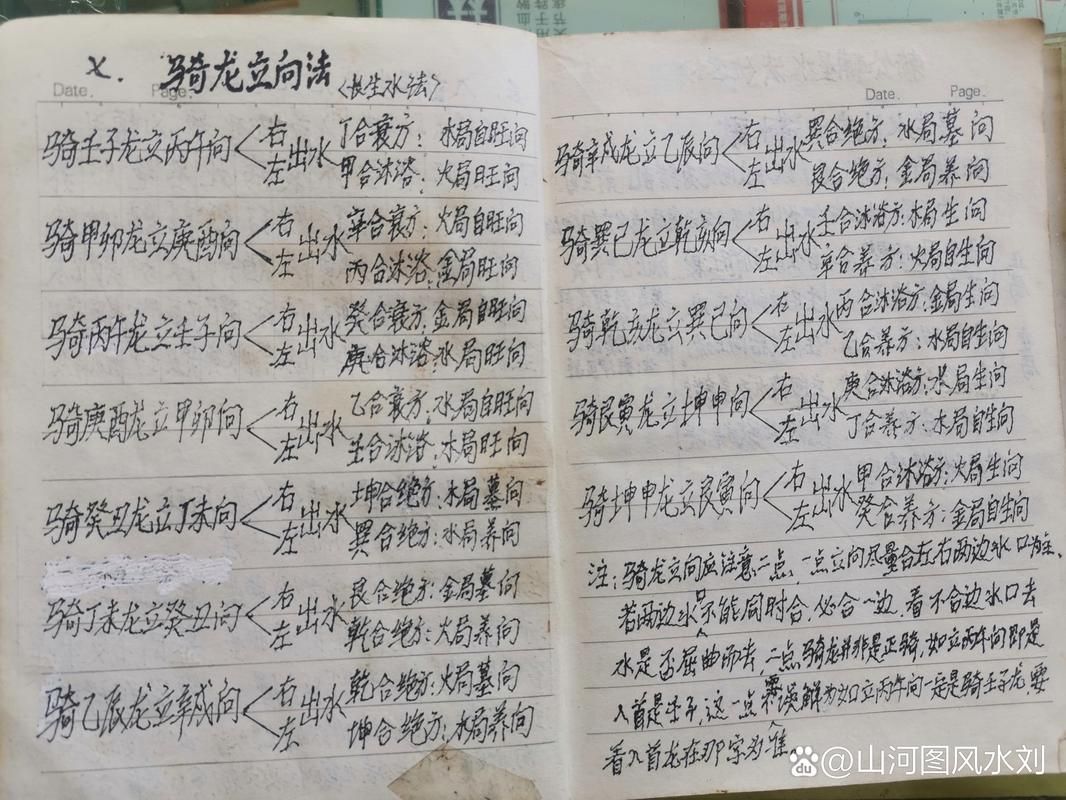 X. 骑龙立向法
<长生水法>
Date. Page.
骑壬子龙立丙午向 右出水 丁合衰方: 水局自旺向
左出水 甲合沐浴: 火局旺向
骑甲卯龙立庚酉向 右出水 辛合衰方: 火局自旺向
左出水 丙合沐浴: 金局旺向
骑丙午龙立壬子向 右出水 癸合衰方: 金局自旺向
左出水 庚合沐浴: 水局旺向
骑庚酉龙立甲卯向 右出水 乙合衰方: 水局自旺向
左出水 壬合沐浴: 木局旺向
骑癸丑龙立丁未向 右出水 坤合绝方: 木局墓向
左出水 巽合绝方: 水局养向
骑丁未龙立癸丑向 右出水 艮合绝方: 金局墓向
左出水 乾合绝方: 火局养向
骑乙辰龙立辛戌向 右出水 乾合绝方: 火局墓向
左出水 坤合绝方: 水局养向
Date. Page.
骑辛戌龙立乙辰向 右出水 巽合绝方: 水局墓向
左出水 艮合绝方: 金局养向
骑巽巳龙立乾亥向 右出水 壬合沐浴方: 木局生向
左出水 辛合养方: 火局自生向
骑乾亥龙立巽巳向 右出水 丙合沐浴方: 金局生向
左出水 乙合养方: 水局自生向
骑艮寅龙立坤申向 右出水 庚合沐浴方: 水局生向
左出水 丁合养方: 木局自生向
骑坤申龙立艮寅向 右出水 甲合沐浴方: 火局生向
左出水 癸合养方: 金局自生向
注: 骑龙立向应注意二点, 一点立向尽量合左右两边水口为主,
若两边水口不能同时合, 必合一边, 看不合边水口去
水是否屈曲而去, 二点骑龙并非是正骑, 如立丙午向即是
入首是壬子, 这一点不要误解为如立丙午向一定是骑壬子龙要
看入首龙在那字为准。
@山河图风水刘